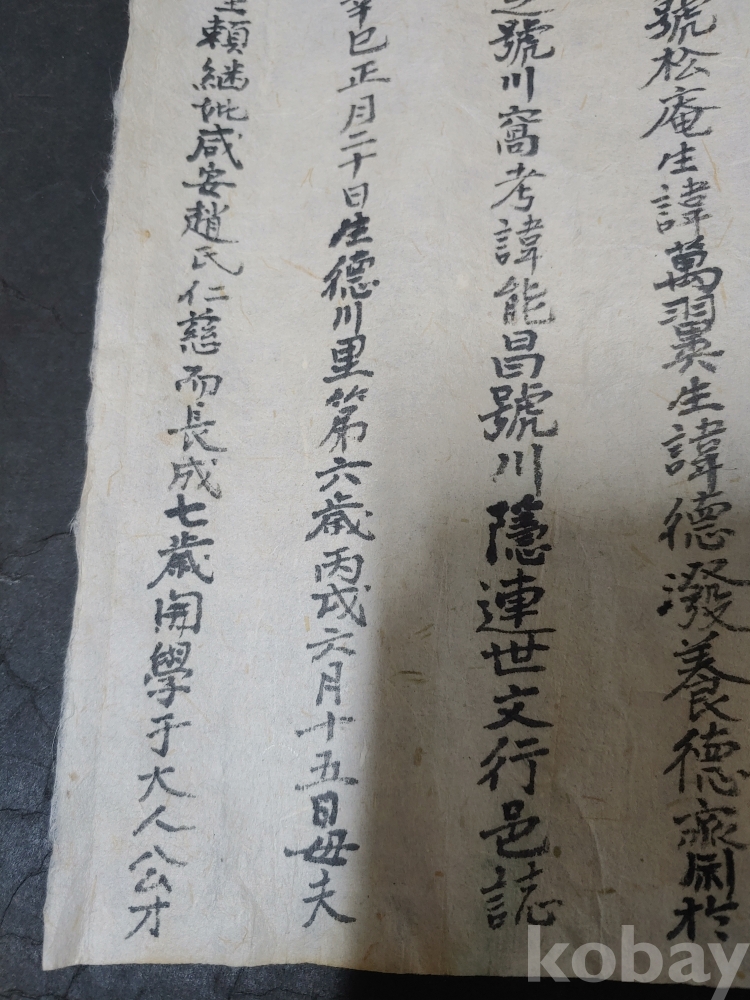 號松庵生諱萬翼生諱德潑養德齋刷於
號川窩考諱能昌號川隱連世文行邑誌
辛巳正月二十日生德川里第六歲丙戌六月十五日母夫
賴繼妣咸安趙氏仁慈而長成七歲開學于大人公才
kobay